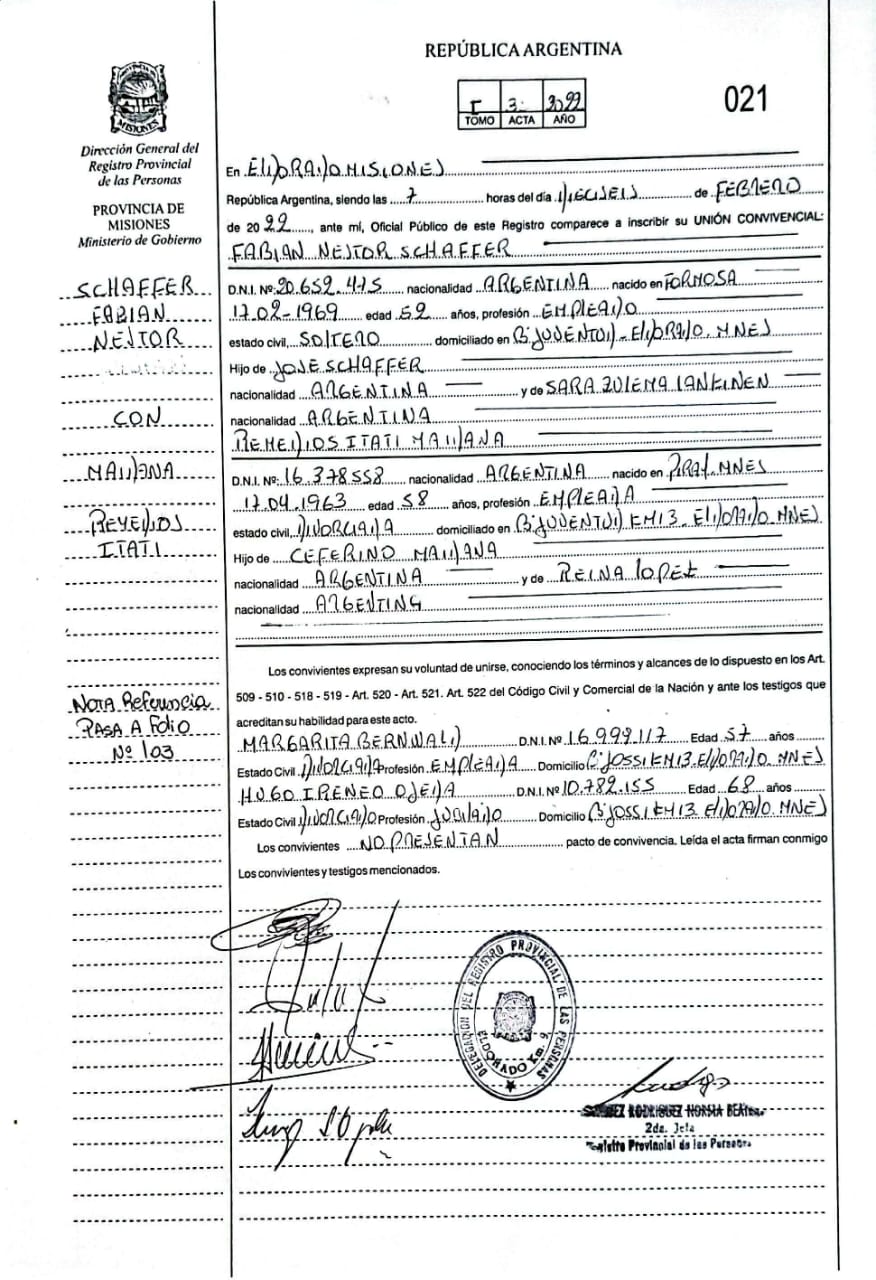 REPÚBLICA ARGENTINA
PROVINCIA DE
MISIONES
Dirección General del
Registro Provincial
de las Personas
PROVINCIA DE
MISIONES
Ministerio de Gobierno
I 3 2022
TOMO ACTA AÑO
021
En ELDORADO MISIONES
República Argentina, siendo las 7 horas del día DIECISEIS de FEBRERO
de 2022, ante mí, Oficial Público de este Registro comparece a inscribir su UNIÓN CONVIVENCIAL:
FABIAN NESTOR SCHAFFER
D.N.I. Nº: 20.652.475 nacionalidad ARGENTINA nacido en FORMOSA
17.02-1969 edad 52 años, profesión EMPLEADO
estado civil, SOLTERO domiciliado en Bº JUVENTUD - ELDORADO. MNES
Hijo de JOSE SCHAFFER
nacionalidad ARGENTINA y de SARA ZULEMA LANKINEN
nacionalidad ARGENTINA
REMEDIOS ITATI MAIDANA
D.N.I. Nº: 16.378558 nacionalidad ARGENTINA nacido en PIRAY. MNES
17.04.1963 edad 58 años, profesión EMPLEADA
estado civil, DIVORCIADA domiciliado en Bº JUVENTUD KM 13. ELDORADO MNES
Hijo de CEFERINO MAIDANA
nacionalidad ARGENTINA y de REINA LOPEZ
nacionalidad ARGENTINA
SCHAFFER
FABIAN
NESTOR
CON
MAIDANA
REMEDIOS
ITATI
NOTA Referencia
PASA A Folio
Nº 103
Los convivientes expresan su voluntad de unirse, conociendo los términos y alcances de lo dispuesto en los Art.
509 - 510 - 518 - 519 - Art. 520 - Art. 521. Art. 522 del Código Civil y Comercial de la Nación y ante los testigos que
acreditan su habilidad para este acto.
MARGARITA BERNWALD D.N.I. Nº 16.999.117 Edad 57 años
Estado Civil DIVORCIADA Profesión EMPLEADA Domicilio Bº JOSSI KM 13. ELDORADO MNES
HUGO IRENEO OJEDA D.N.I. Nº 10.782.155 Edad 68 años
Estado Civil DIVORCIADO Profesión JUBILADO Domicilio Bº JOSSI KM 13 ELDORADO MNES
Los convivientes NO PRESENTAN pacto de convivencia. Leída el acta firman conmigo
Los convivientes y testigos mencionados.
DELEGACION DEL REGISTRO PROVINCIAL DE LAS PERSONAS
ELDORADO Km. 9
RODRIGUEZ NORMA BEATRIZ
2da. Jefa
Registro Provincial de las Personas